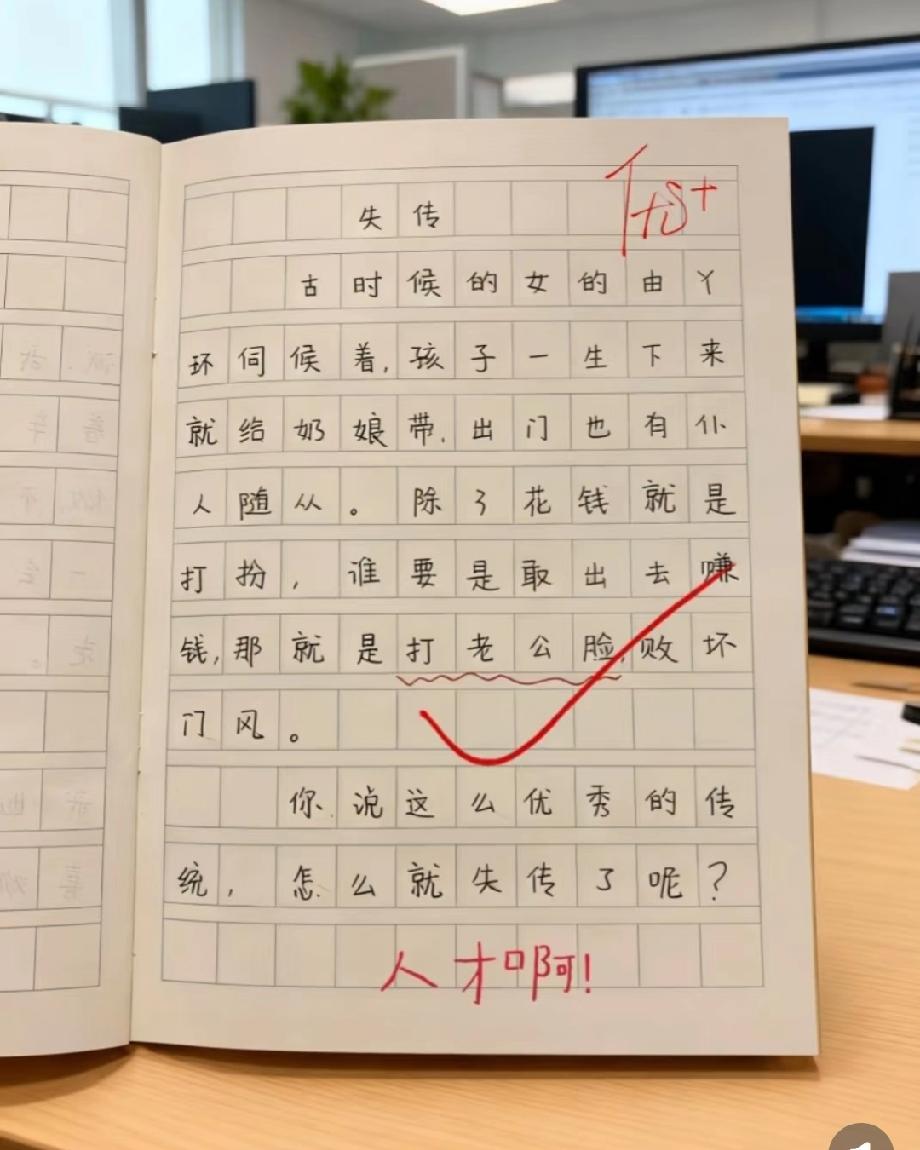 失传
古时候的女的由丫
环伺候着,孩子一生下来
就给奶娘带.出门也有仆
人随从。除了花钱就是
打扮,谁要是敢出去赚
钱,那就是打老公脸,败坏
门风。
你说这么优秀的传
统,怎么就失传了呢?
人才啊!